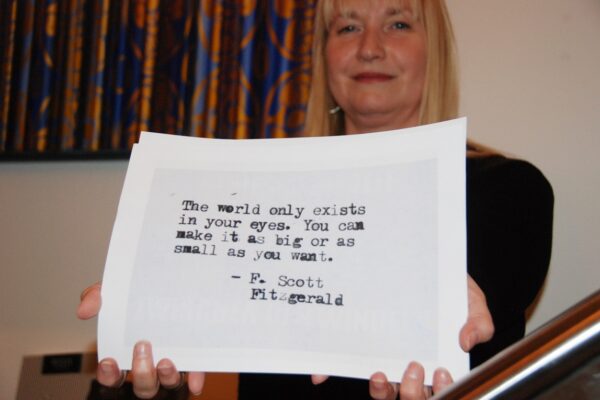 The world only exists
in your eyes. You can
make it as big or as
small as you want.
- F. Scott
Fitzgerald